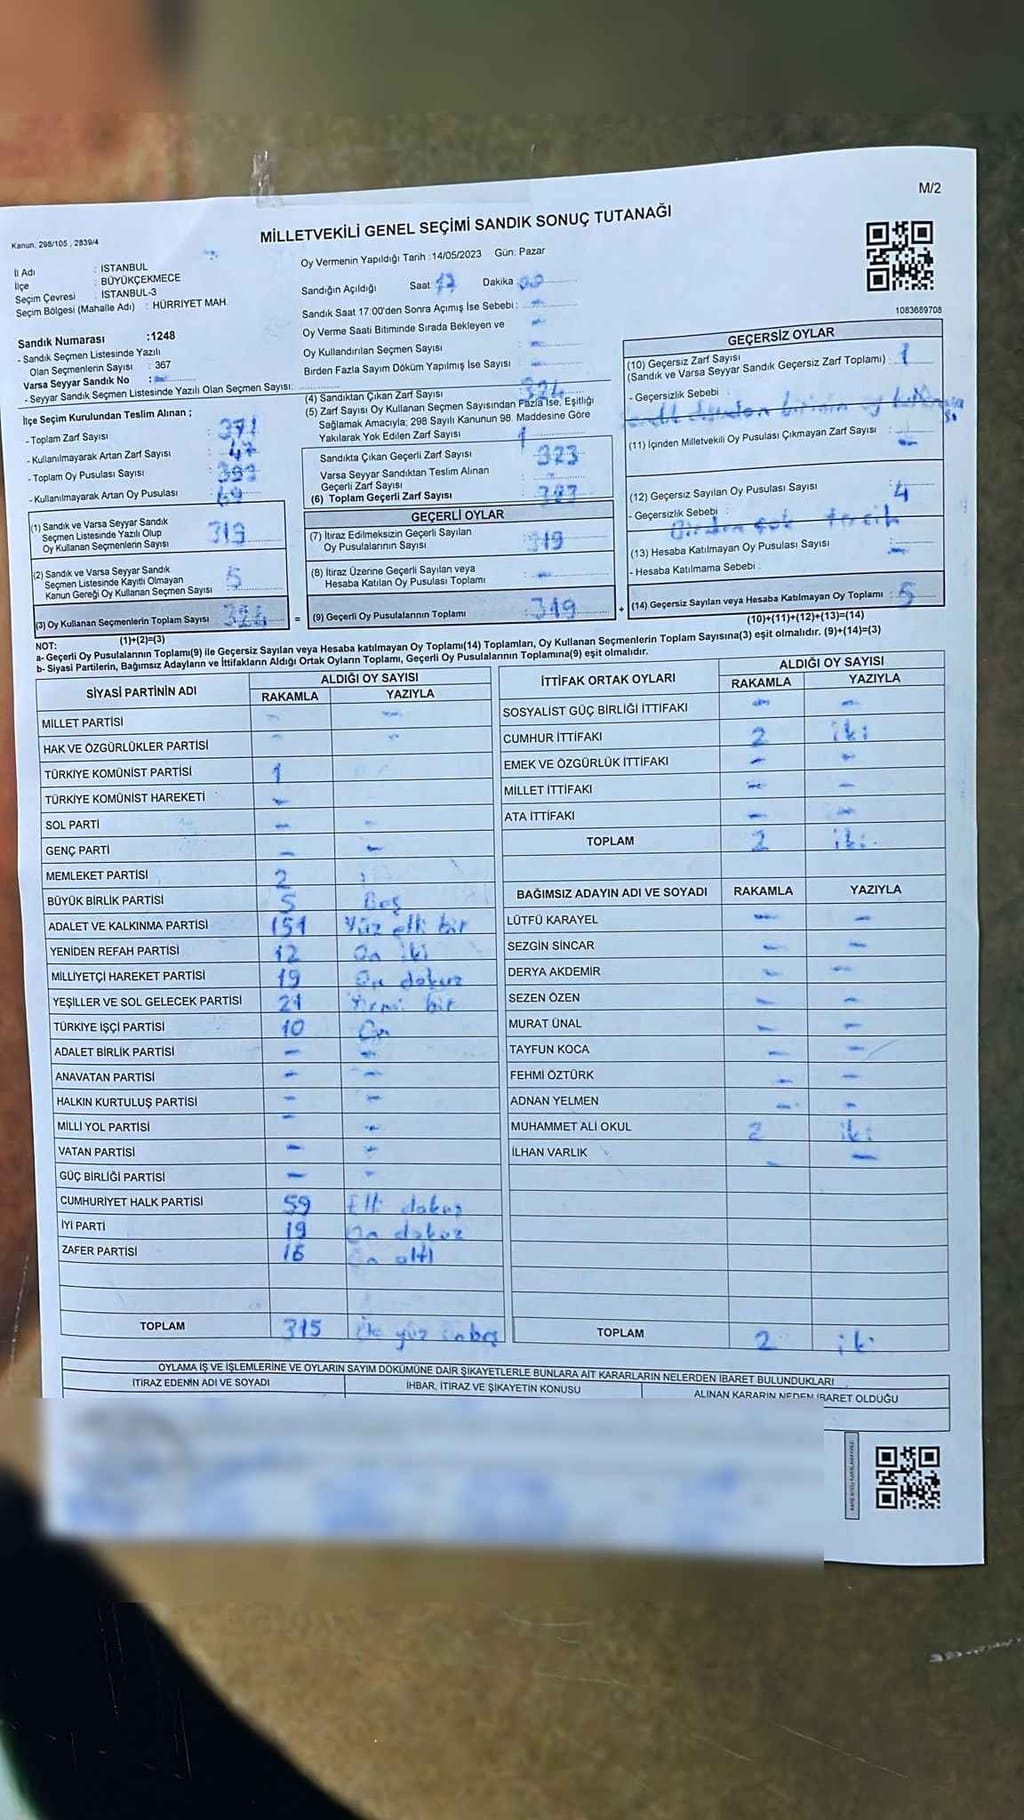 M/2
Kanun: 298/105 , 2839/4
MİLLETVEKİLİ GENEL SEÇİMİ SANDIK SONUÇ TUTANAĞI
İl Adı : İSTANBUL
İlçe : BÜYÜKÇEKMECE
Seçim Çevresi : İSTANBUL-3
Seçim Bölgesi (Mahalle Adı) : HÜRRİYET MAH.
Sandık Numarası :1248
- Sandık Seçmen Listesinde Yazılı
Olan Seçmenlerin Sayısı : 367
Varsa Seyyar Sandık No : -
- Seyyar Sandık Seçmen Listesinde Yazılı Olan Seçmen Sayısı:
Oy Vermenin Yapıldığı Tarih :14/05/2023 Gün: Pazar
Sandığın Açıldığı Saat: 17 Dakika: 00
Sandık Saat 17:00'den Sonra Açımış İse Sebebi : -
Oy Verme Saati Bitiminde Sırada Bekleyen ve -
Oy Kullandırılan Seçmen Sayısı -
Birden Fazla Sayım Döküm Yapılmış İse Sayısı -
1083689708
İlçe Seçim Kurulundan Teslim Alınan ;
- Toplam Zarf Sayısı : 371
- Kullanılmayarak Artan Zarf Sayısı : 47
- Toplam Oy Pusulası Sayısı : 393
- Kullanılmayarak Artan Oy Pusulası : 69
(1) Sandık ve Varsa Seyyar Sandık
Seçmen Listesinde Yazılı Olup
Oy Kullanan Seçmenlerin Sayısı 319
(2) Sandık ve Varsa Seyyar Sandık
Seçmen Listesinde Kayıtlı Olmayan
Kanun Gereği Oy Kullanan Seçmen Sayısı 5
(3) Oy Kullanan Seçmenlerin Toplam Sayısı 324
(1)+(2)=(3)
(4) Sandıktan Çıkan Zarf Sayısı 324
(5) Zarf Sayısı Oy Kullanan Seçmen Sayısından Fazla İse, Eşitliği
Sağlamak Amacıyla; 298 Sayılı Kanunun 98. Maddesine Göre
Yakılarak Yok Edilen Zarf Sayısı 1
Sandıkta Çıkan Geçerli Zarf Sayısı 323
Varsa Seyyar Sandıktan Teslim Alınan
Geçerli Zarf Sayısı : -
(6) Toplam Geçerli Zarf Sayısı : 323
GEÇERLİ OYLAR
(7) İtiraz Edilmeksizin Geçerli Sayılan
Oy Pusulalarının Sayısı : 319
(8) İtiraz Üzerine Geçerli Sayılan veya
Hesaba Katılan Oy Pusulası Toplamı : -
= (9) Geçerli Oy Pusulalarının Toplamı : 319 +
GEÇERSİZ OYLAR
(10) Geçersiz Zarf Sayısı
(Sandık ve Varsa Seyyar Sandık Geçersiz Zarf Toplamı) : 1
- Geçersizlik Sebebi :
(11) İçinden Milletvekili Oy Pusulası Çıkmayan Zarf Sayısı : -
(12) Geçersiz Sayılan Oy Pusulası Sayısı : 4
- Geçersizlik Sebebi : Birden çok tercih
(13) Hesaba Katılmayan Oy Pusulası Sayısı : -
- Hesaba Katılmama Sebebi :
(14) Geçersiz Sayılan veya Hesaba Katılmayan Oy Toplamı : 5
(10)+(11)+(12)+(13)=(14)
NOT:
a- Geçerli Oy Pusulaları Toplamı(9) ile Geçersiz Sayılan veya Hesaba katılmayan Oy Toplamı(14) Toplamları, Oy Kullanan Seçmenlerin Toplam Sayısına(3) eşit olmalıdır. (9)+(14)=(3)
b- Siyasi Partilerin, Bağımsız Adayların ve İttifakların Aldığı Ortak Oyların Toplamı, Geçerli Oy Pusulalarının Toplamına(9) eşit olmalıdır.
SİYASİ PARTİNİN ADI ALDIĞI OY SAYISI
RAKAMLA YAZIYLA
MİLLET PARTİSİ - -
HAK VE ÖZGÜRLÜKLER PARTİSİ - -
TÜRKİYE KOMÜNİST PARTİSİ 1
TÜRKİYE KOMÜNİST HAREKETİ -
SOL PARTİ - -
GENÇ PARTİ - -
MEMLEKET PARTİSİ 2
BÜYÜK BİRLİK PARTİSİ 5 Beş
ADALET VE KALKINMA PARTİSİ 151 Yüz elli bir
YENİDEN REFAH PARTİSİ 12 On iki
MİLLİYETÇİ HAREKET PARTİSİ 19 On dokuz
YEŞİLLER VE SOL GELECEK PARTİSİ 21 Yirmi bir
TÜRKİYE İŞÇİ PARTİSİ 10 On
ADALET BİRLİK PARTİSİ - -
ANAVATAN PARTİSİ - -
HALKIN KURTULUŞ PARTİSİ - -
MİLLİ YOL PARTİSİ - -
VATAN PARTİSİ - -
GÜÇ BİRLİĞİ PARTİSİ - -
CUMHURİYET HALK PARTİSİ 59 Elli dokuz
İYİ PARTİ 19 On dokuz
ZAFER PARTİSİ 16 On altı
TOPLAM 315 Üç yüz onbeş
İTTİFAK ORTAK OYLARI ALDIĞI OY SAYISI
RAKAMLA YAZIYLA
SOSYALİST GÜÇ BİRLİĞİ İTTİFAKI - -
CUMHUR İTTİFAKI 2 iki
EMEK VE ÖZGÜRLÜK İTTİFAKI - -
MİLLET İTTİFAKI - -
ATA İTTİFAKI - -
TOPLAM 2 iki
BAĞIMSIZ ADAYIN ADI VE SOYADI RAKAMLA YAZIYLA
LÜTFÜ KARAYEL - -
SEZGİN SİNCAR - -
DERYA AKDEMİR - -
SEZEN ÖZEN - -
MURAT ÜNAL - -
TAYFUN KOCA - -
FEHMİ ÖZTÜRK - -
ADNAN YELMEN - -
MUHAMMET ALİ OKUL 2 iki
İLHAN VARLIK - -
TOPLAM 2 iki
OYLAMA İŞ VE İŞLEMLERİNE VE OYLARIN SAYIM DÖKÜMÜNE DAİR ŞİKAYETLERLE BUNLARA AİT KARARLARIN NELERDEN İBARET BULUNDUKLARI
İTİRAZ EDENİN ADI VE SOYADI İHBAR, İTİRAZ VE ŞİKAYETİN KONUSU ALINAN KARARIN NEDEN İBARET OLDUĞU